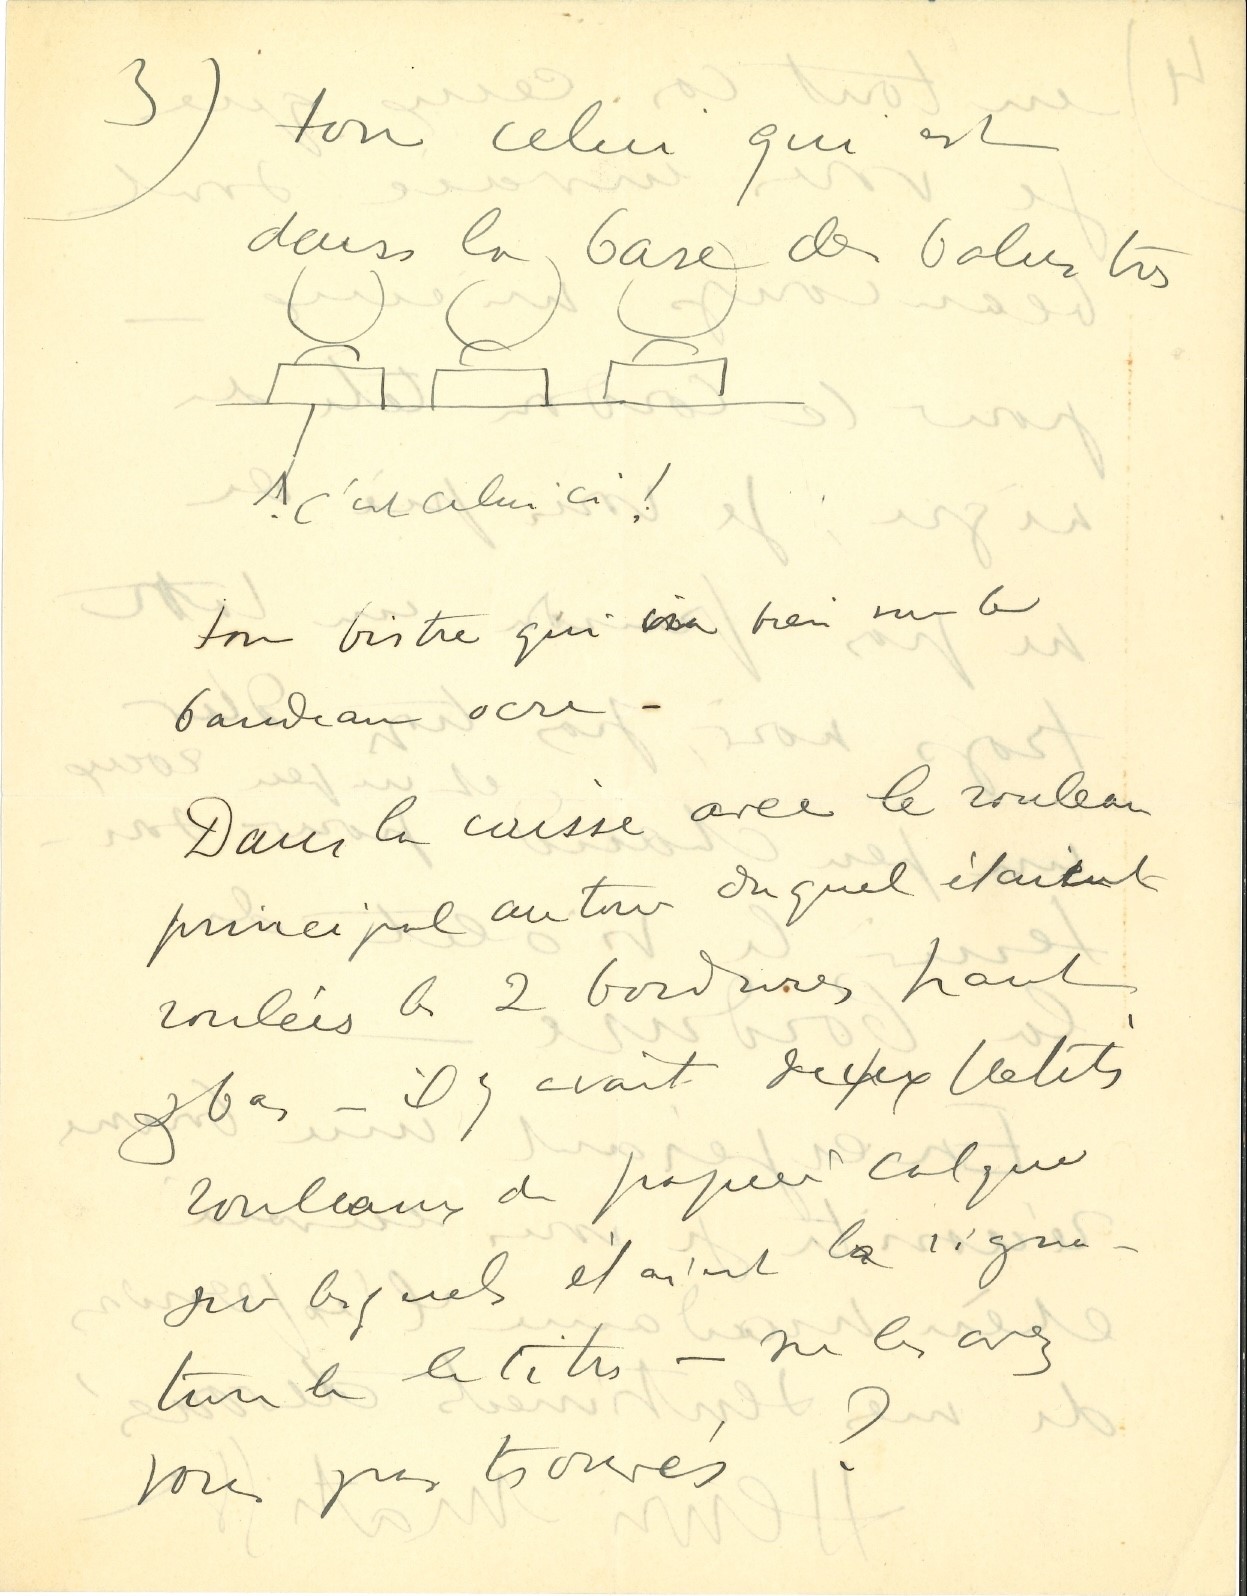 3) ton celui qui est
dans la base des balustres
! c'est celui ci !
ton bistre qui ira bien sur le
bandeau ocre -
Dans la caisse avec le rouleau
principal autour duquel étaient
roulées les 2 bordures haut
& bas - il y avait deux petits
rouleaux de papier calque
sur lesquels étaient la signa-
ture & le titre - ne les avez
vous pas trouvés ?